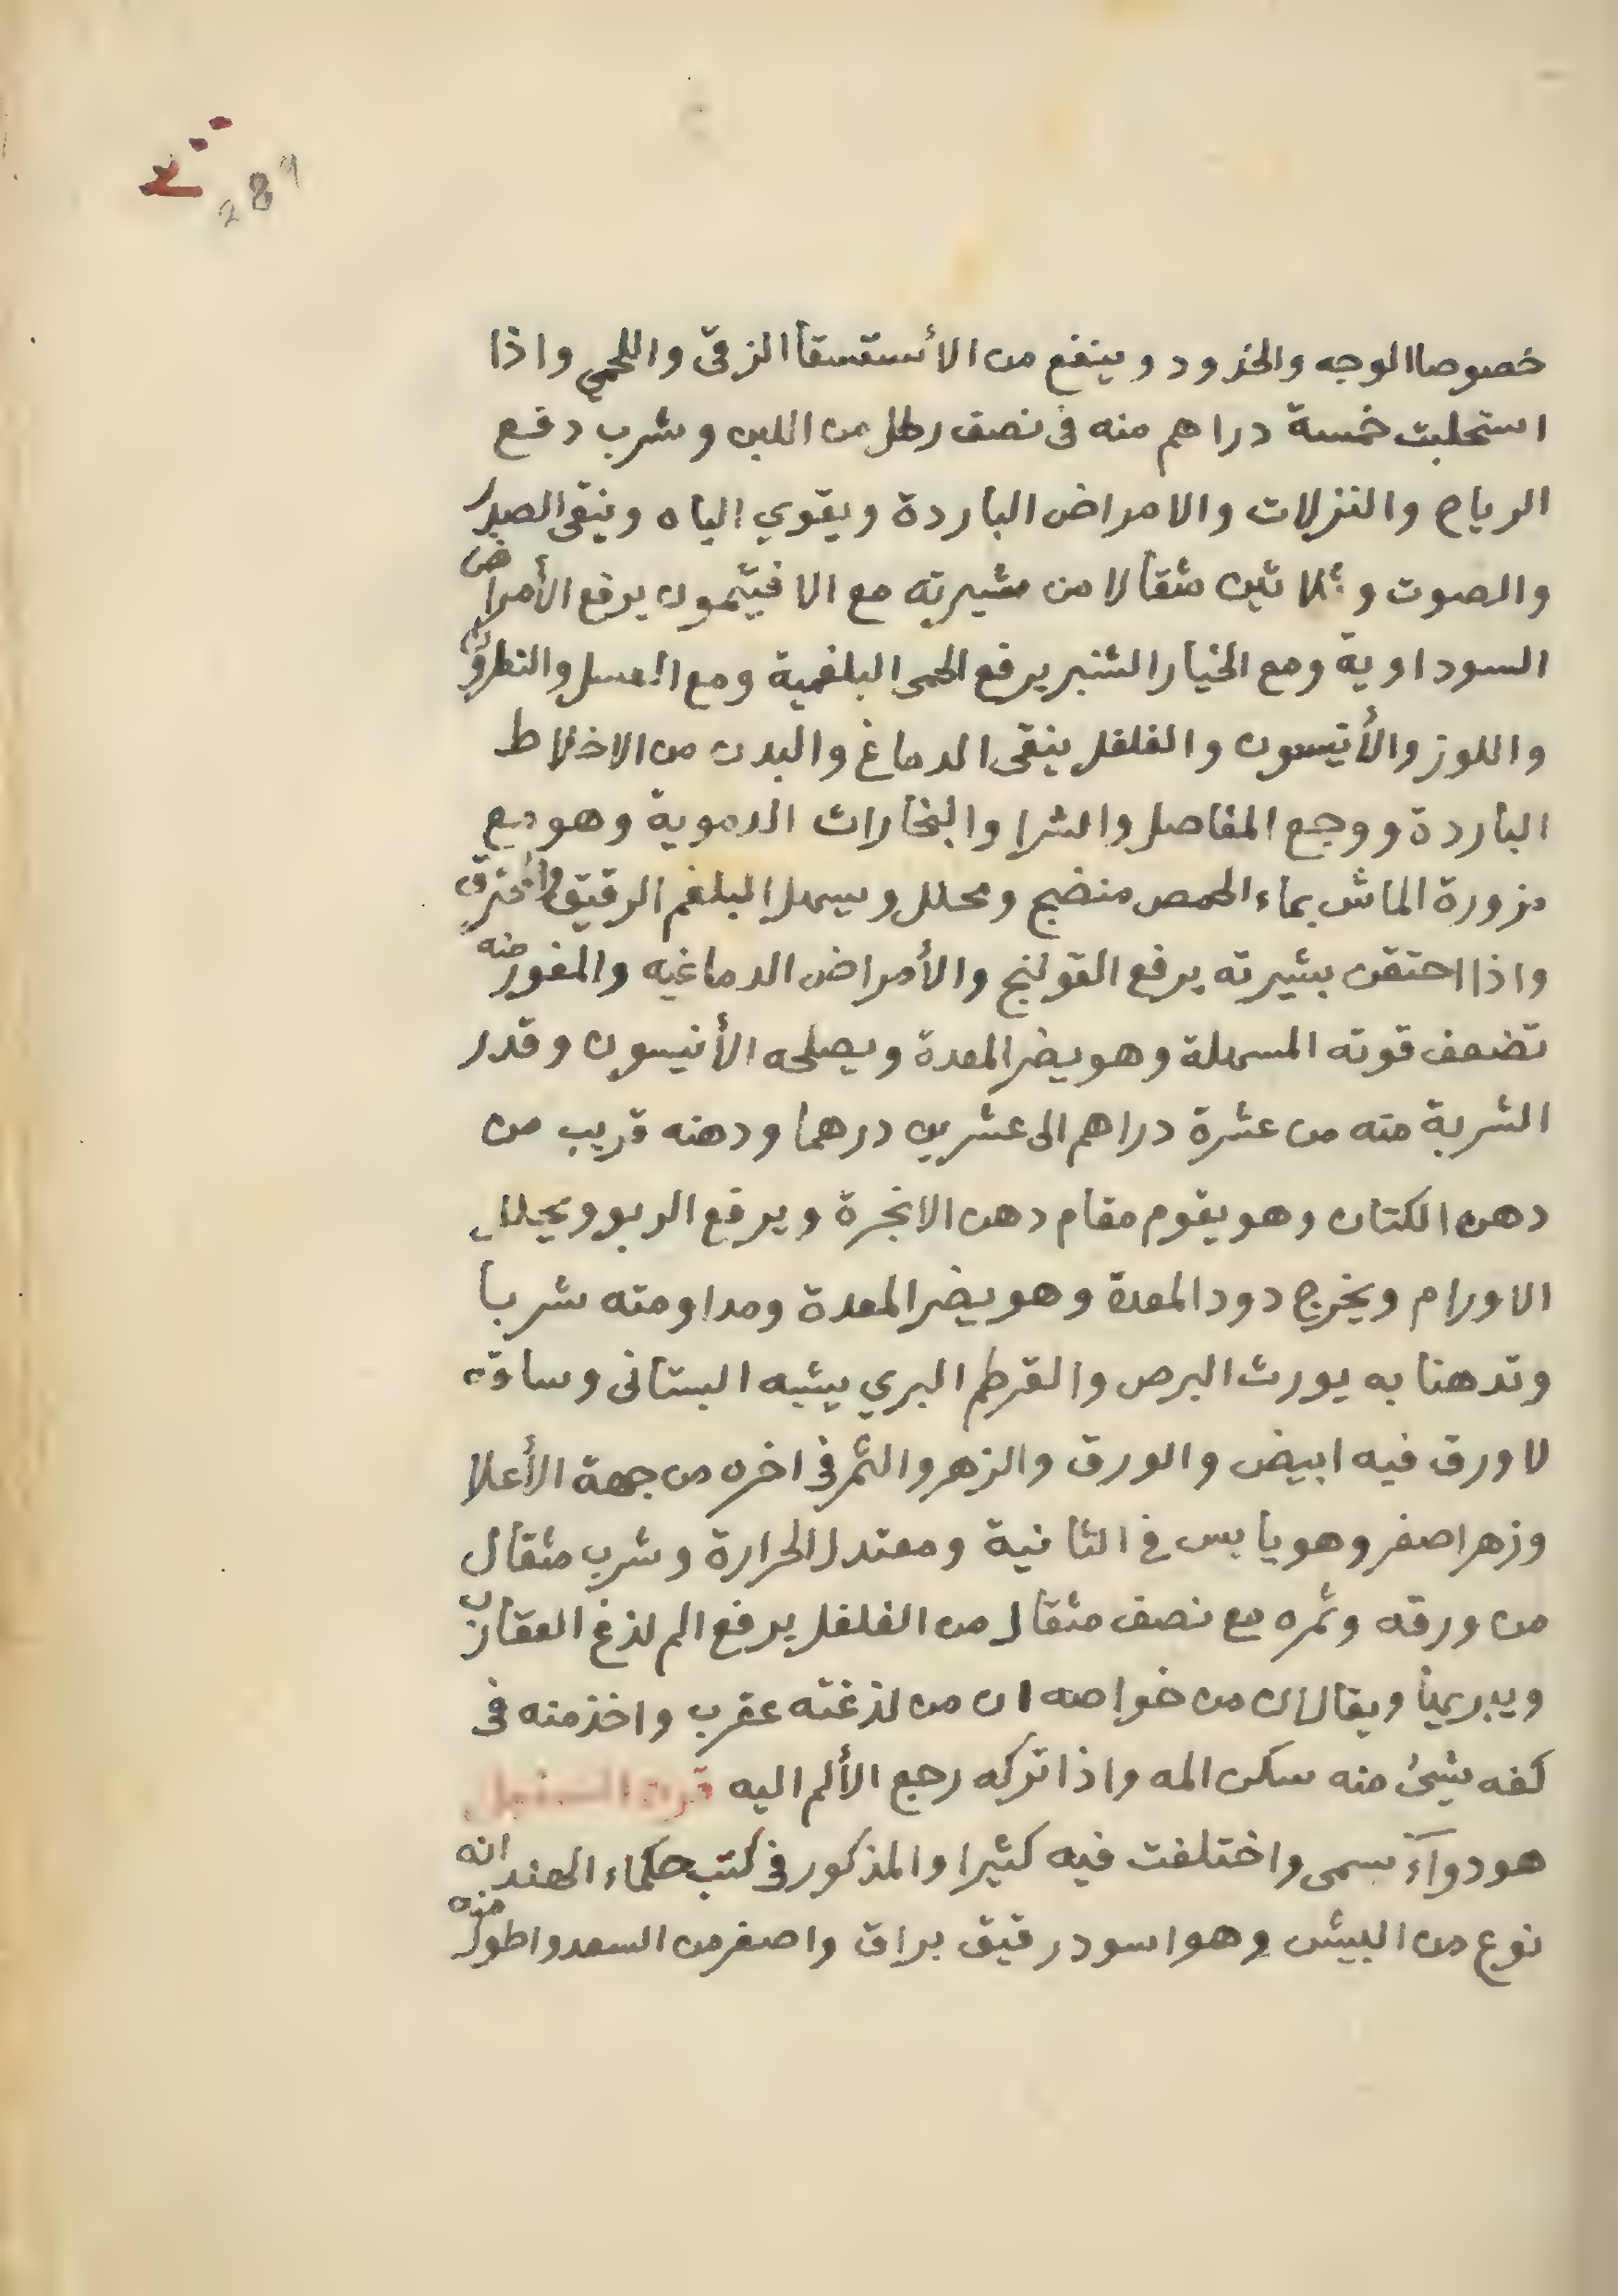 ٣٠٠
289
خصوصا الوجه والخدود وينفع من الأستسقأ الزقى واللحمي واذا
استحلبت خمسة دراهم منه فى نصف رطل من اللبن وشرب دفع
الرياح والنزلات والامراض الباردة ويقوي الباه وينقى الصدر
والصوت وثلاثين مثقالا من مشيرته مع الافيتمون يرفع الأمراض
السوداوية ومع الخيار الشنبر يرفع الحمى البلغمية ومع العسل والنطرون
واللوز والأنيسون والفلفل ينقى الدماغ والبدن من الاخلاط
الباردة ووجع المفاصل والشرا والبخارات الدموية وهو مع
مزورة الماش بماء الحمص منضج ومحلل ويسهل البلغم الرقيق والمحترق
واذا احتقن بشيرته يرفع القولنج والأمراض الدماغيه والمغور منه
تضعف قوته المسهلة وهو يضر المعدة ويصلحه الأنيسون وقدر
الشربة منه من عشرة دراهم الى عشرين درهما ودهنه قريب من
دهن الكتان وهو يقوم مقام دهن الانجرة ويرفع الربو ويحلل
الاورام ويخرج دود المعدة وهو يضر المعدة ومداومته شربا
وتدهنا به يورث البرص والقرطم البري يشبه البستانى وساقه
لا ورق فيه ابيض والورق والزهر والثمر فى اخره من جهة الأعلا
وزهر اصفر وهو يابس في الثانية ومعتدل الحرارة وشرب مثقال
من ورقه وثمره مع نصف مثقال من الفلفل يرفع الم لذغ العقارب
ويقال ان من خواصه ان من لذغته عقرب واخذ منه فى
كفه شئ منه سكن المه واذا تركه رجع الألم اليه قرون السنبل
هو دوآء سمى واختلفت فيه كثيرا والمذكور فى كتب حكماء الهند انه
نوع من البيش وهو اسود رقيق براق واصغر من السعد واطول منه